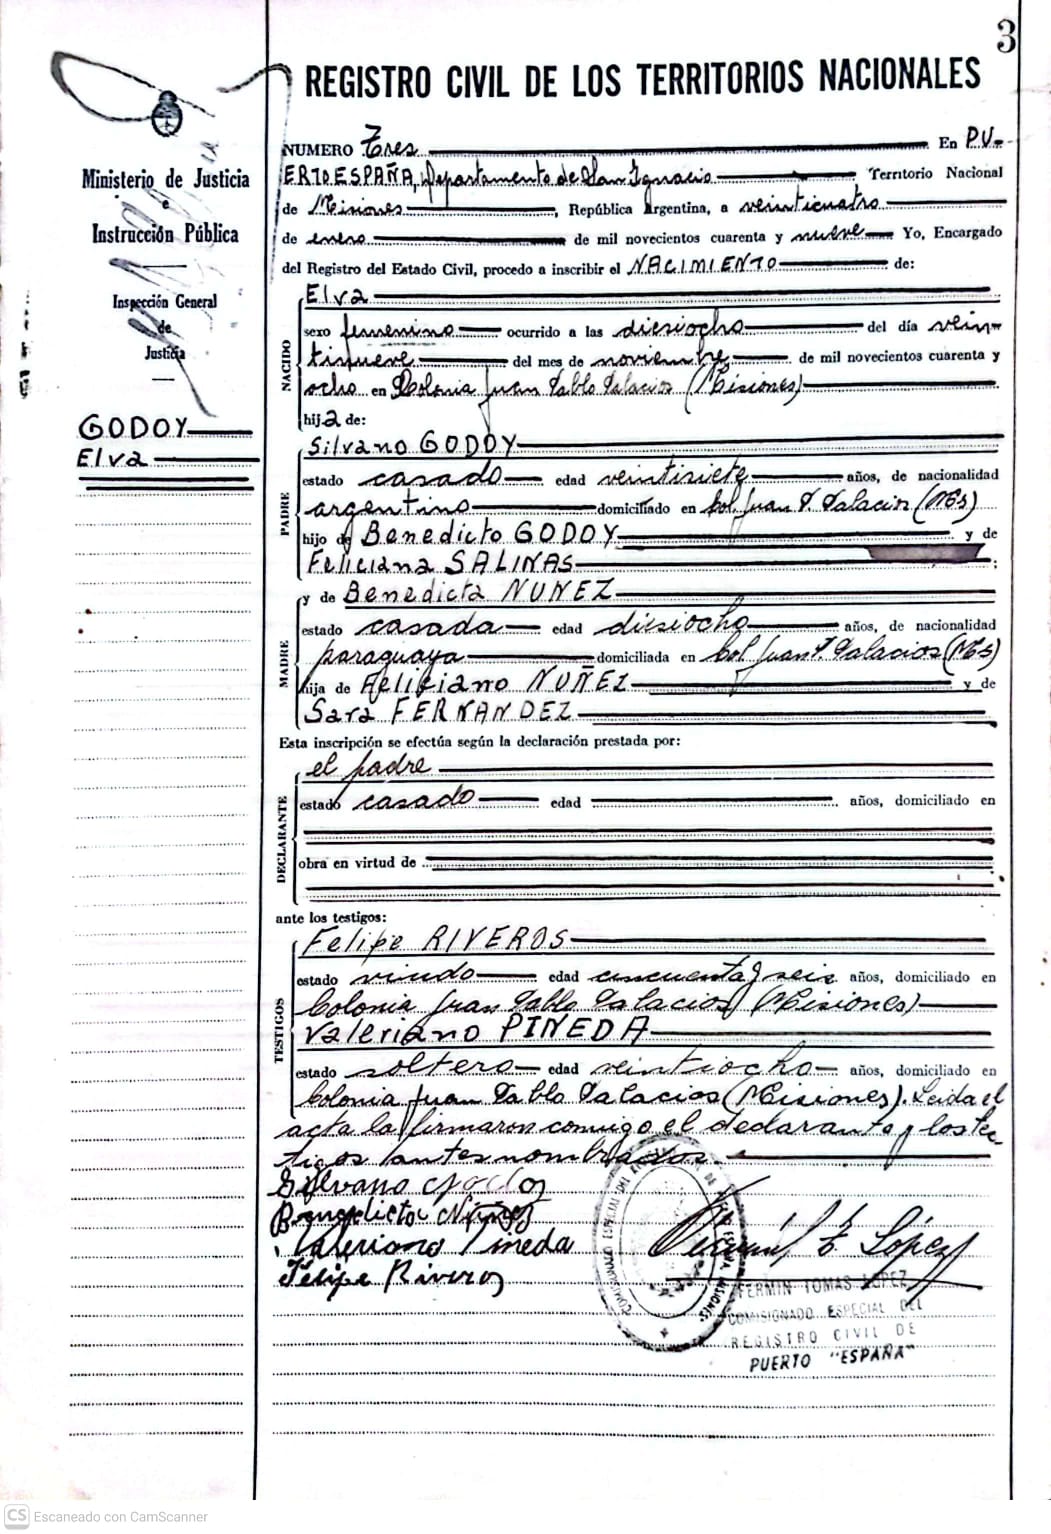 3
REGISTRO CIVIL DE LOS TERRITORIOS NACIONALES
Ministerio de Justicia
e
Instrucción Pública
Inspección General
de
Justicia
GODOY
Elva
NUMERO Tres En PU-
ERTO ESPAÑA, Departamento de San Ignacio Territorio Nacional
de Misiones, República Argentina, a veinticuatro
de enero de mil novecientos cuarenta y nueve Yo, Encargado
del Registro del Estado Civil, procedo a inscribir el NACIMIENTO de:
NACIDO
Elva
sexo femenino ocurrido a las diesiocho del día vein-
tinueve del mes de noviembre de mil novecientos cuarenta y
ocho en Colonia Juan Pablo Palacios (Misiones)
hija de:
PADRE
Silvano GODOY
estado casado edad veintisiete años, de nacionalidad
argentino domiciliado en Col. Juan P. Palacios (Ms)
hijo de Benedicto GODOY y de
Feliciana SALINAS;
MADRE
y de Benedicta NUÑEZ
estado casada edad diesiocho años, de nacionalidad
paraguaya domiciliada en Col Juan P. Palacios (Ms)
hija de Feliciano NUÑEZ y de
Sara FERNANDEZ
Esta inscripción se efectúa según la declaración prestada por:
DECLARANTE
el padre
estado casado edad años, domiciliado en
obra en virtud de
ante los testigos:
TESTIGOS
Felipe RIVEROS
estado viudo edad cincuenta y seis años, domiciliado en
Colonia Juan Pablo Palacios (Misiones)
Valeriano PINEDA
estado soltero edad veintiocho años, domiciliado en
Colonia Juan Pablo Palacios (Misiones). Leida el
acta la firmaron conmigo el declarante y los tes-
tigos antes nombrados.
Silvano Godoy
Benedicta Núñez
Valeriano Pineda
Felipe Riveros
Fermín T. López
FERMIN TOMAS LOPEZ
COMISIONADO ESPECIAL DEL
REGISTRO CIVIL DE
PUERTO "ESPAÑA"
CS Escaneado con CamScanner